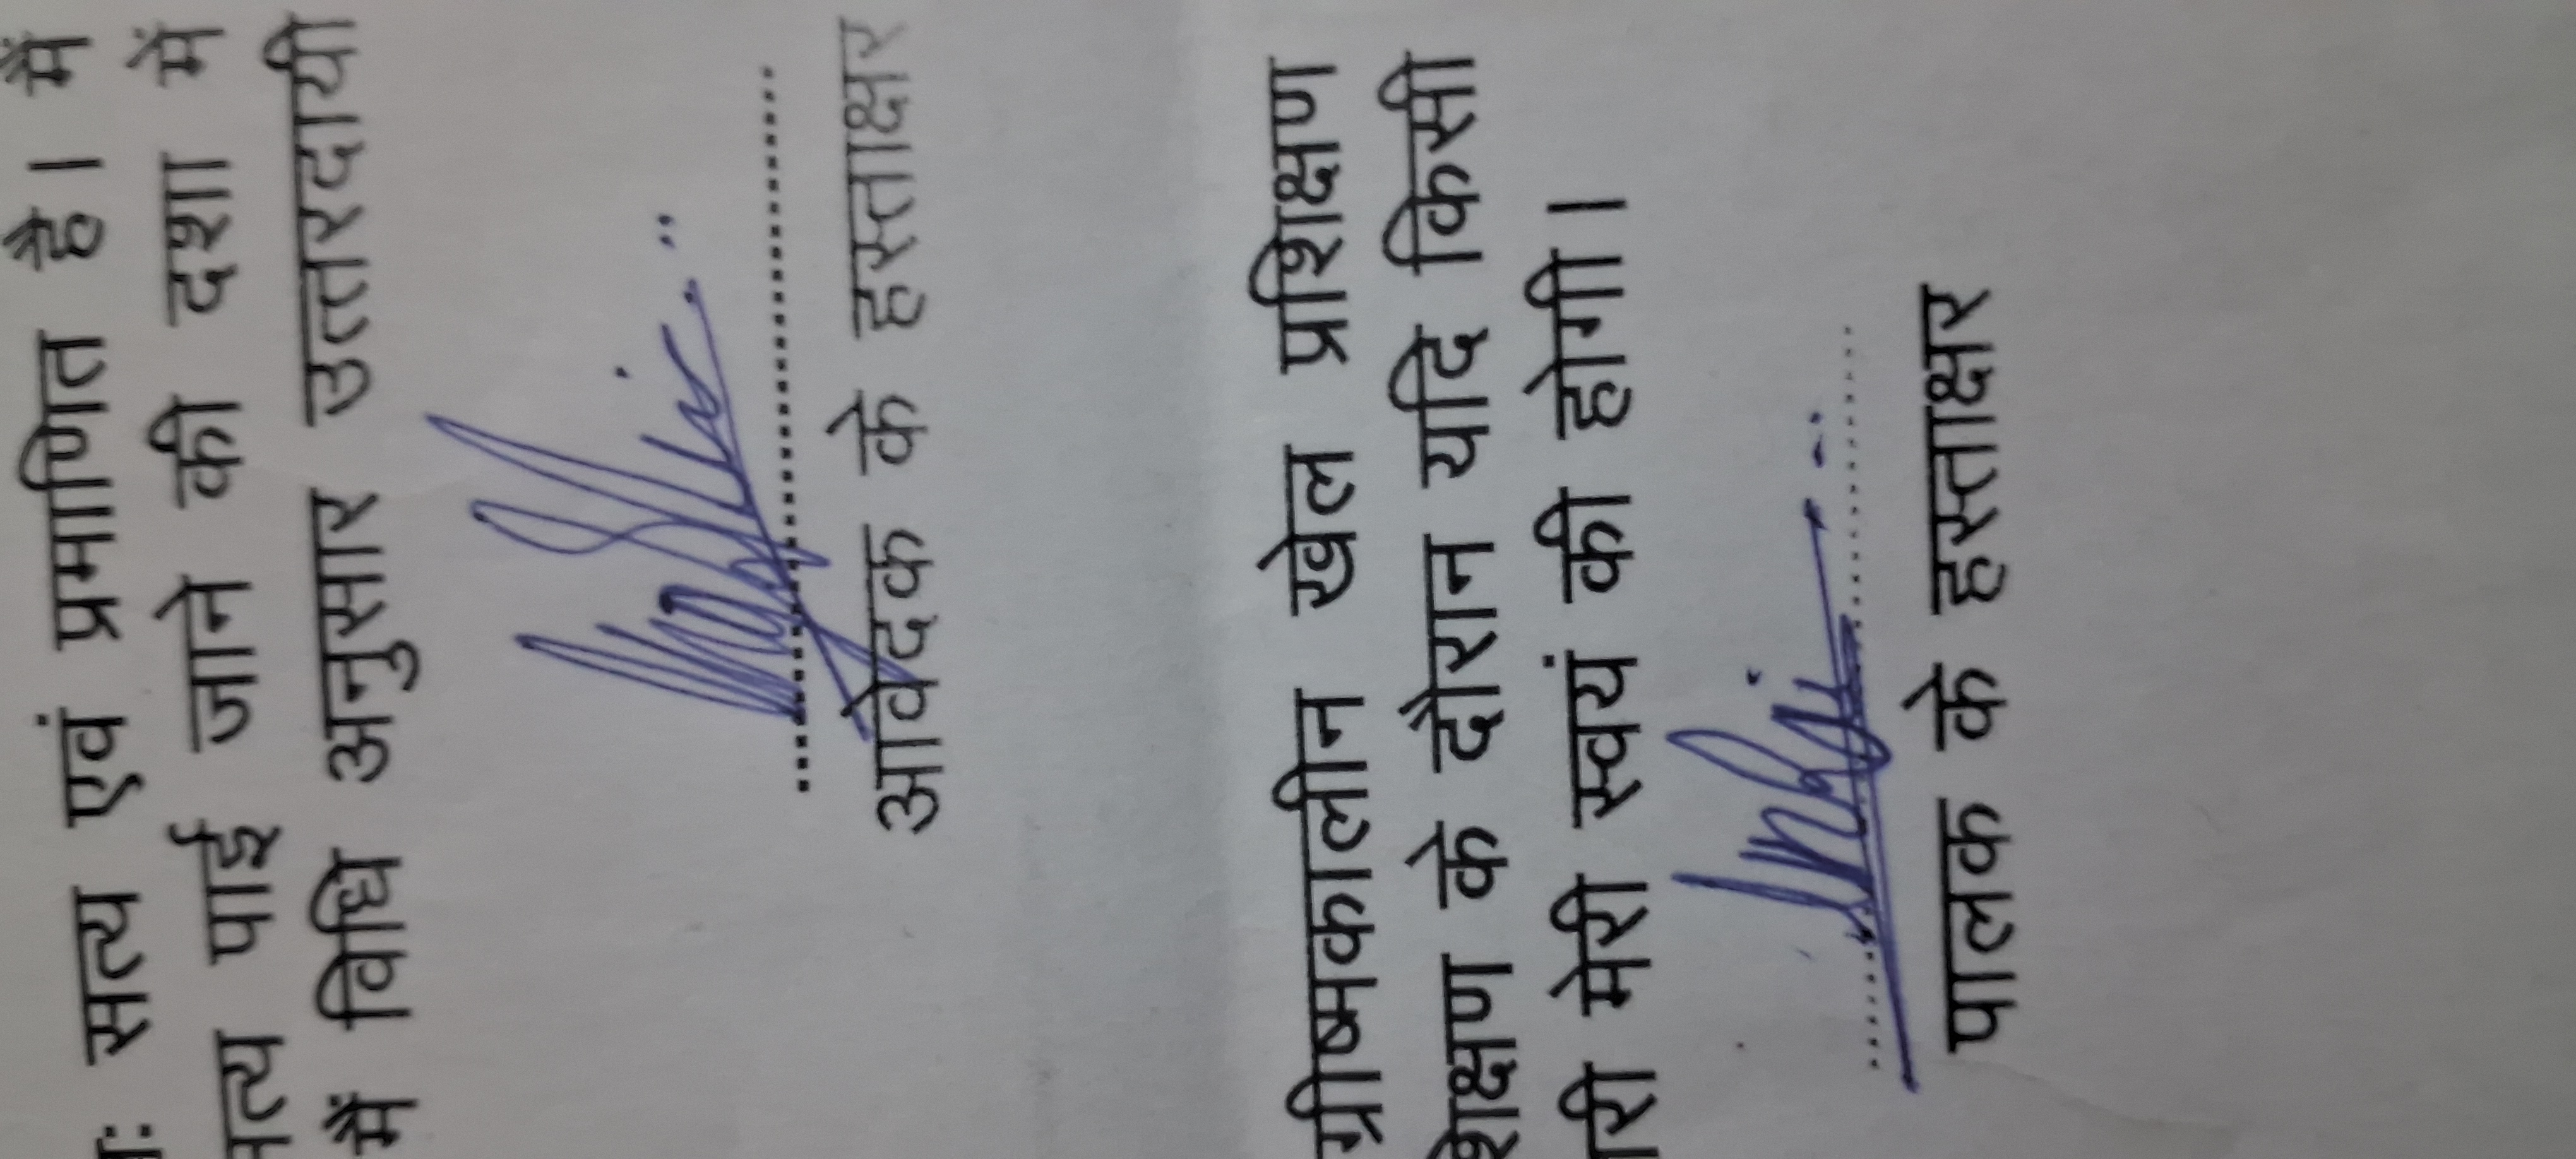 सत्य एवं प्रमाणित है। मैं
पाई जाने की दशा में
मैं विधि अनुसार उत्तरदायी
आवेदक के हस्ताक्षर
ग्रीष्मकालीन खेल प्रशिक्षण
के दौरान यदि किसी
मेरी स्वयं की होगी।
पालक के हस्ताक्षर